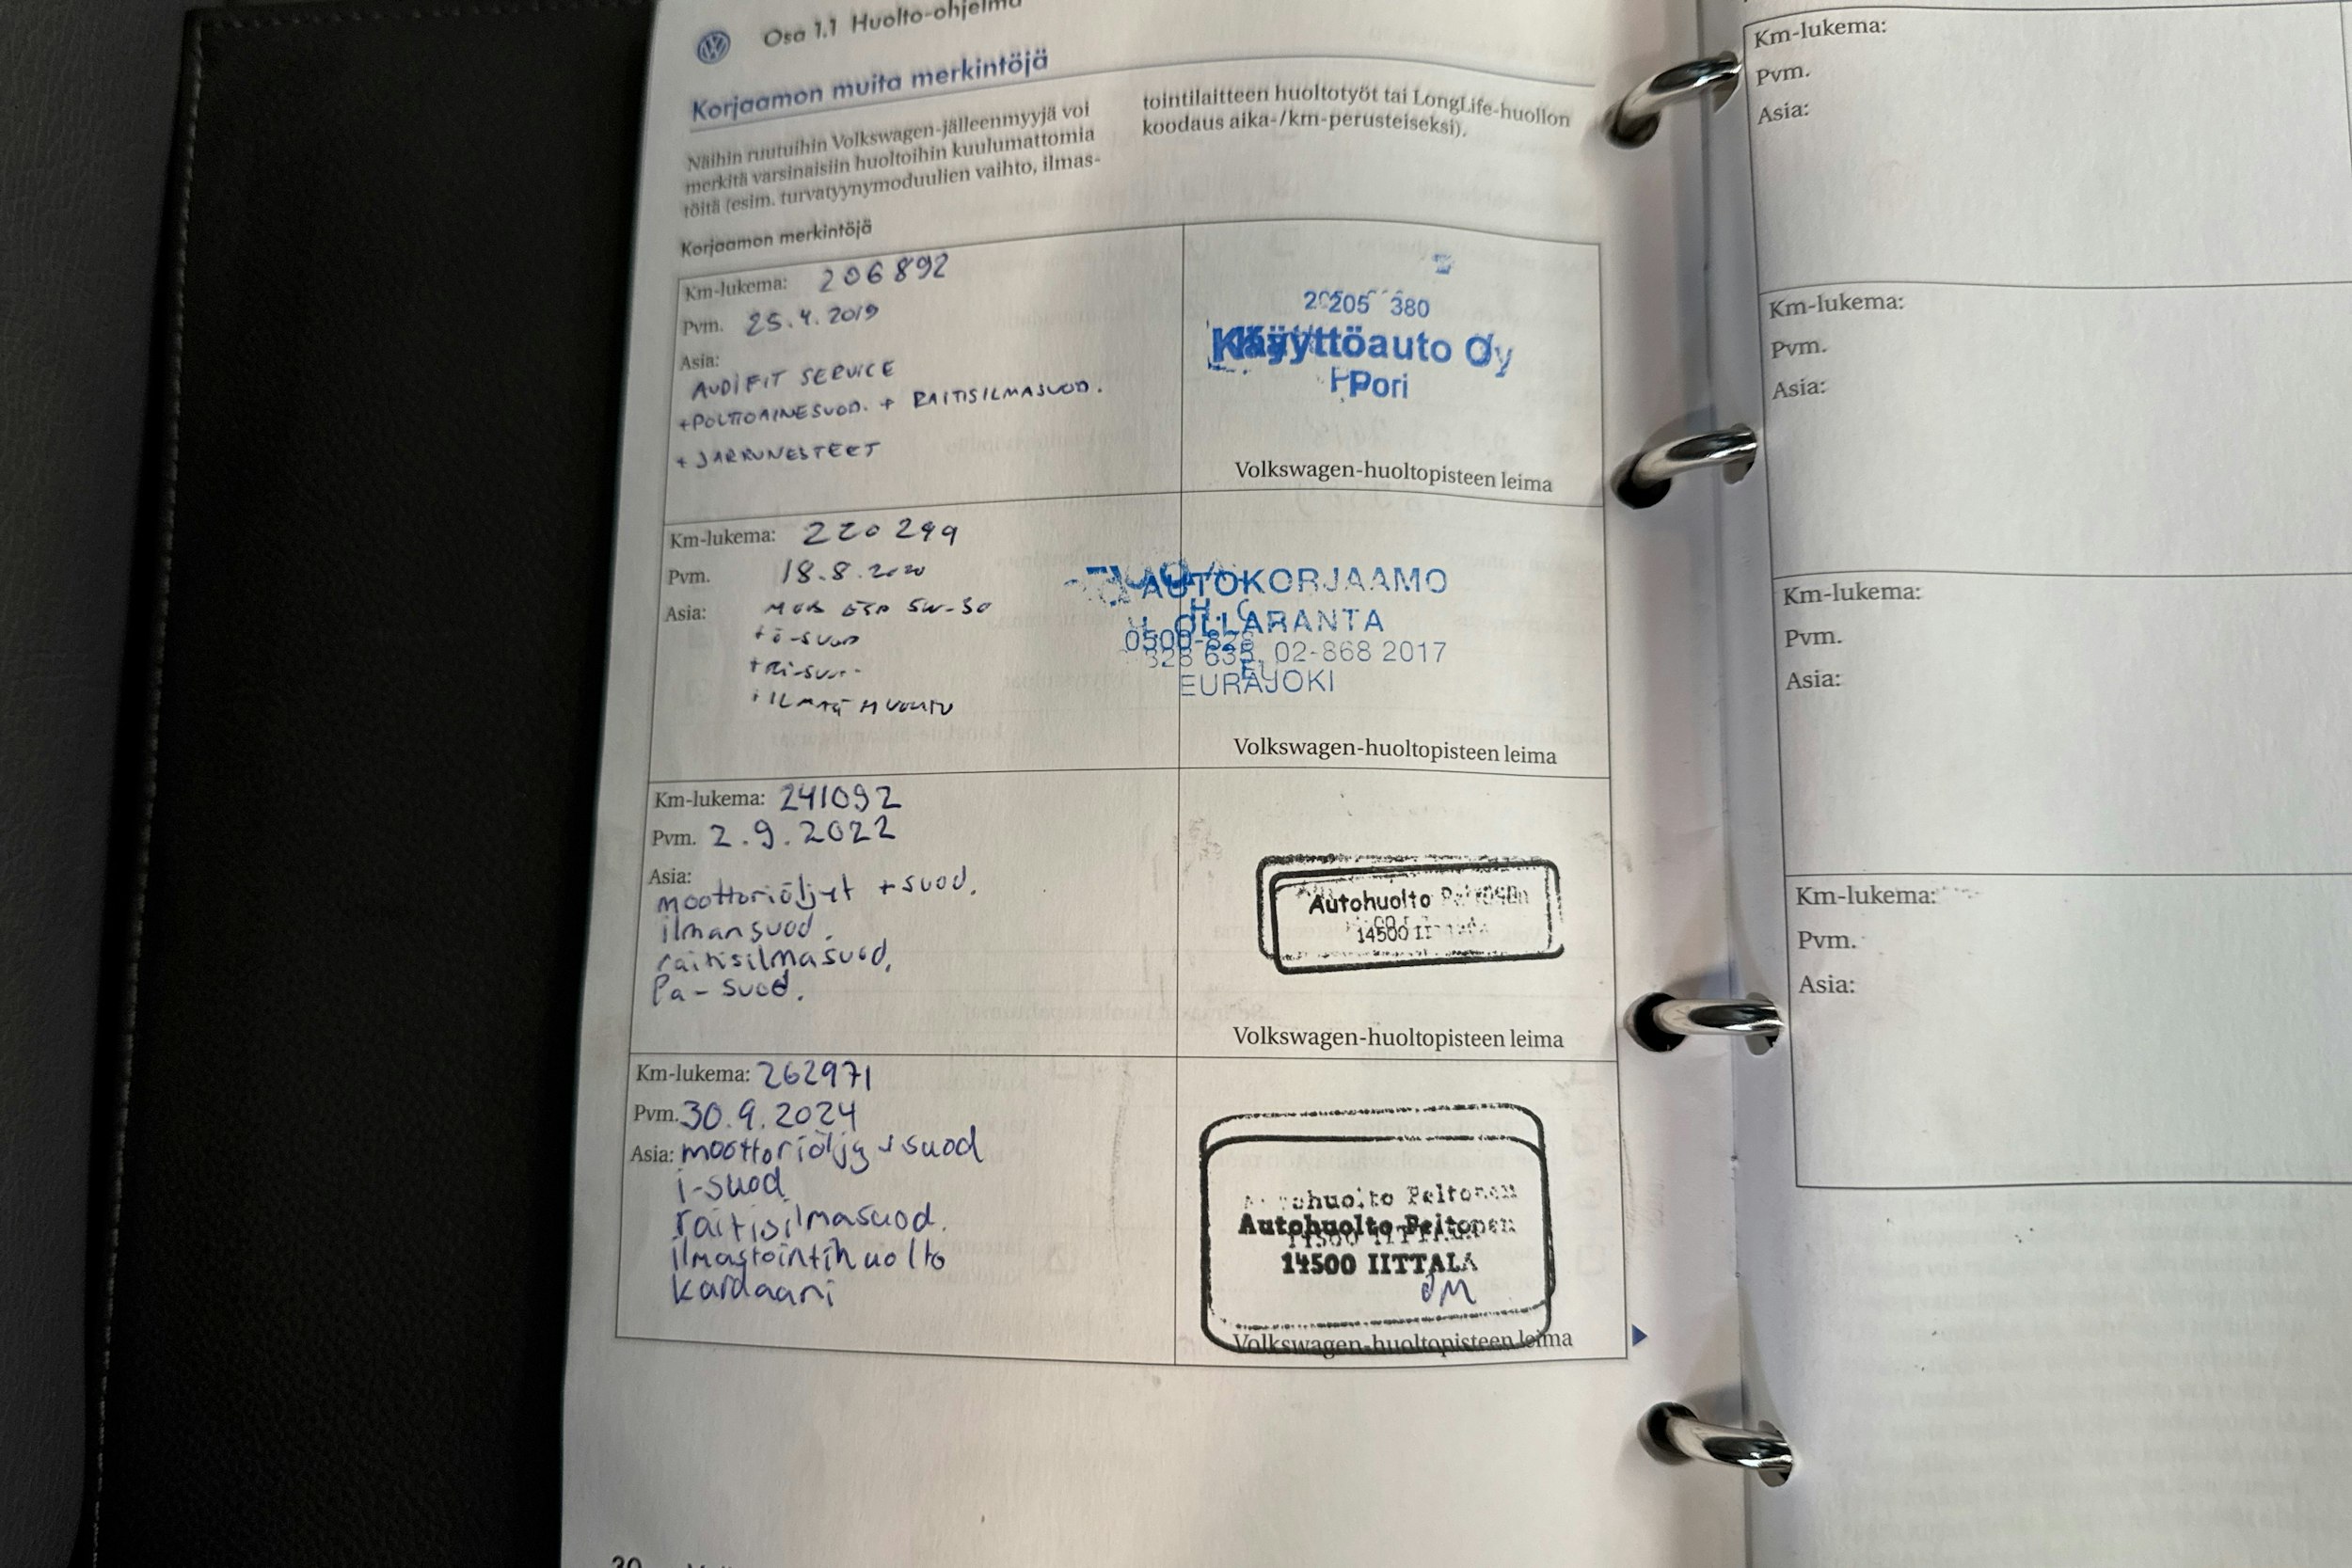 Osa 1.1 Huolto-ohjelma
Korjaamon muita merkintöjä
Näihin ruutuihin Volkswagen-jälleenmyyjä voi
merkitä varsinaisiin huoltoihin kuulumattomia
töitä (esim. turvatyynymoduulien vaihto, ilmas-
tointilaitteen huoltotyöt tai LongLife-huollon
koodaus aika-/km-perusteiseksi).
Korjaamon merkintöjä
Km-lukema: 206892
Pvm. 25.4.2019
Asia:
AUDI FIT SERVICE
+POLTTOAINESUOD. + RAITISILMASUOD.
+ JARRUNESTEET
205 380
Käyttöauto Oy
Pori
Volkswagen-huoltopisteen leima
Km-lukema: 220299
Pvm. 18.8.2020
Asia: 5W-30
+ö-suod
+Ri-suod
AUTOKORJAAMO
OLLARANTA
02-868 2017
EURAJOKI
Volkswagen-huoltopisteen leima
Km-lukema: 241092
Pvm. 2.9.2022
Asia:
moottoriöljyt +suod.
ilmansuod.
raitisilmasuod.
Pa-suod.
Autohuolto Peltonen
14500 IITTALA
Volkswagen-huoltopisteen leima
Km-lukema: 262971
Pvm. 30.9.2024
Asia: moottoriöljy + suod
i-suod
raitisilmasuod.
ilmastointihuolto
kardaani
Autohuolto Peltonen
Autohuolto Peltonen
14500 IITTALA
14500 IITTALA
Volkswagen-huoltopisteen leima
30
Km-lukema:
Pvm.
Asia:
Km-lukema:
Pvm.
Asia:
Km-lukema:
Pvm.
Asia:
Km-lukema:
Pvm.
Asia: